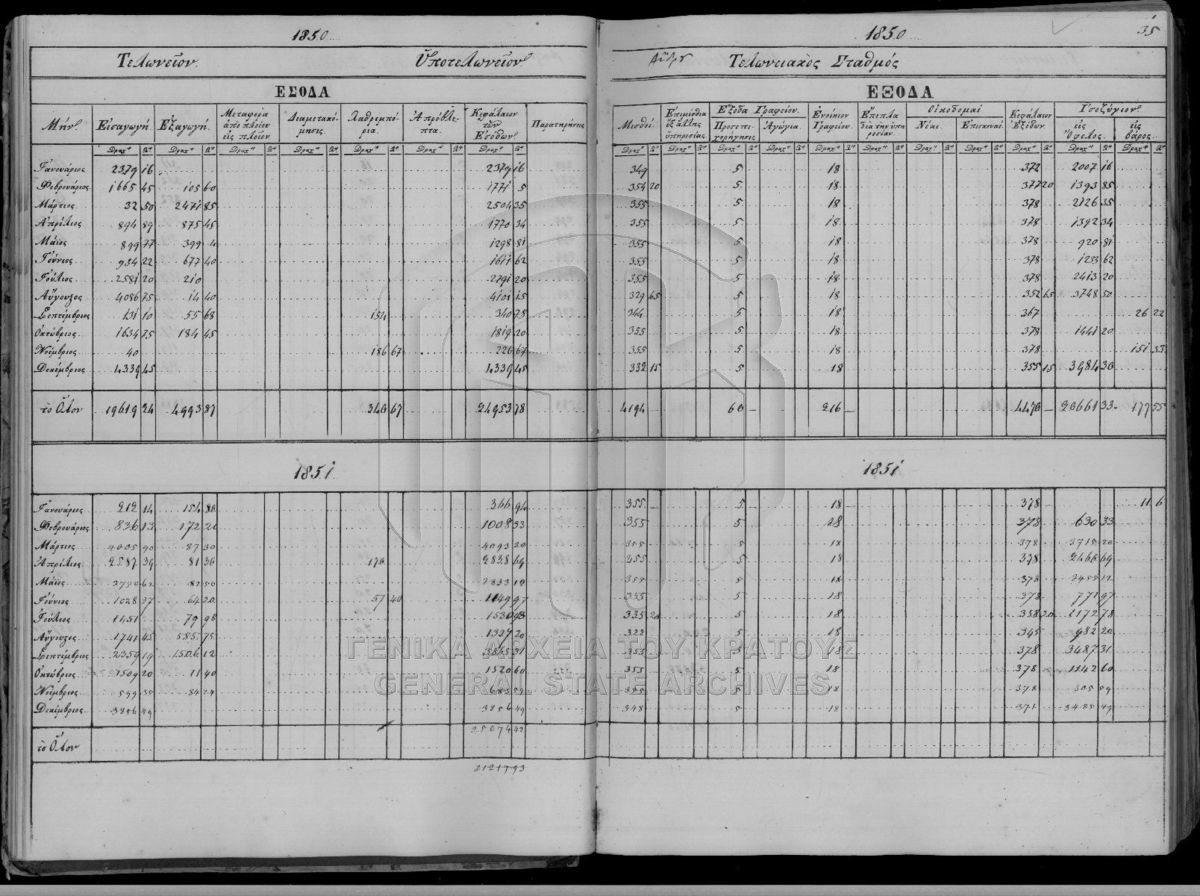 1850 1850 35
Τελωνεῖον Ὑποτελωνεῖον Τελωνειακὸς Σταθμός
ΕΣΟΔΑ ΕΞΟΔΑ
Μήν Εἰσαγωγή Ἐξαγωγή Μεταφορὰ ἀπὸ πλοίου εἰς πλοῖον Διαμετακόμισις Λαθρεμπόρια Ἀπρόβλεπτα Κεφάλαιον τῶν Ἐσόδων Παρατηρήσεις Μισθοί Ἐπιμίσθια Ἔξοδα Γραφείου Προσεπιχορήγησις Ἀγώγια Ἐνοίκιον Γραφείου Ἔπιπλα διὰ τὴν ὑπηρεσίαν Οἰκοδομαί Νέαι Ἐπισκευαί Κεφάλαιον Ἐξόδων Ἰσοζύγιον εἰς Ὄφελος εἰς βάρος
Ἰανουάριος 2379 16 2379 16 349 5 18 372 2007 16
Φεβρουάριος 1665 45 105 60 1771 5 354 20 5 18 377 20 1393 85
Μάρτιος 32 50 2471 85 2504 35 355 5 18 378 2126 35
Ἀπρίλιος 894 89 875 45 1770 34 355 5 18 378 1392 34
Μάϊος 899 77 399 4 1298 81 355 5 18 378 920 81
Ἰούνιος 934 22 677 40 1611 62 355 5 18 378 1233 62
Ἰούλιος 2581 20 210 2791 20 355 5 18 378 2413 20
Αὔγουστος 4086 75 14 40 4101 15 329 65 5 18 352 65 3748 50
Σεπτέμβριος 131 10 55 68 154 340 75 344 5 18 367 26 22
Ὀκτώβριος 1634 75 184 45 1819 20 355 5 18 378 1441 20
Νοέμβριος 40 186 67 226 67 355 5 18 378 151 33
Δεκέμβριος 4339 45 4339 45 332 15 5 18 355 15 3984 30
τὸ Ὅλον 19619 24 4993 87 340 67 24953 78 4194 60 216 4470 20661 33 177 55
1851 1851
Ἰανουάριος 212 14 154 80 366 94 355 5 18 378 11 6
Φεβρουάριος 836 13 172 20 1008 33 355 5 18 378 630 33
Μάρτιος 4005 90 87 30 4093 20 355 5 18 378 3715 20
Ἀπρίλιος 2587 39 81 30 170 2838 69 355 5 18 378 2460 69
Μάϊος 82 50 2833 12 355 5 18 378 2455 12
Ἰούνιος 1028 37 64 20 57 40 1149 97 355 5 18 378 771 97
Ἰούλιος 1451 79 98 1530 98 335 20 5 18 358 20 1172 78
Αὔγουστος 585 75 1327 20 322 5 18 345 982 20
Σεπτέμβριος 2359 19 1506 12 3865 31 355 5 18 378 3487 31
Ὀκτώβριος 1509 20 11 40 1520 60 355 5 18 378 1142 60
Νοέμβριος 599 35 84 24 683 59 355 5 18 378 305 59
Δεκέμβριος 3856 49 3856 49 348 5 18 371 3485 49
τὸ Ὅλον
ΓΕΝΙΚΑ ΑΡΧΕΙΑ ΤΟΥ ΚΡΑΤΟΥΣ
GENERAL STATE ARCHIVES